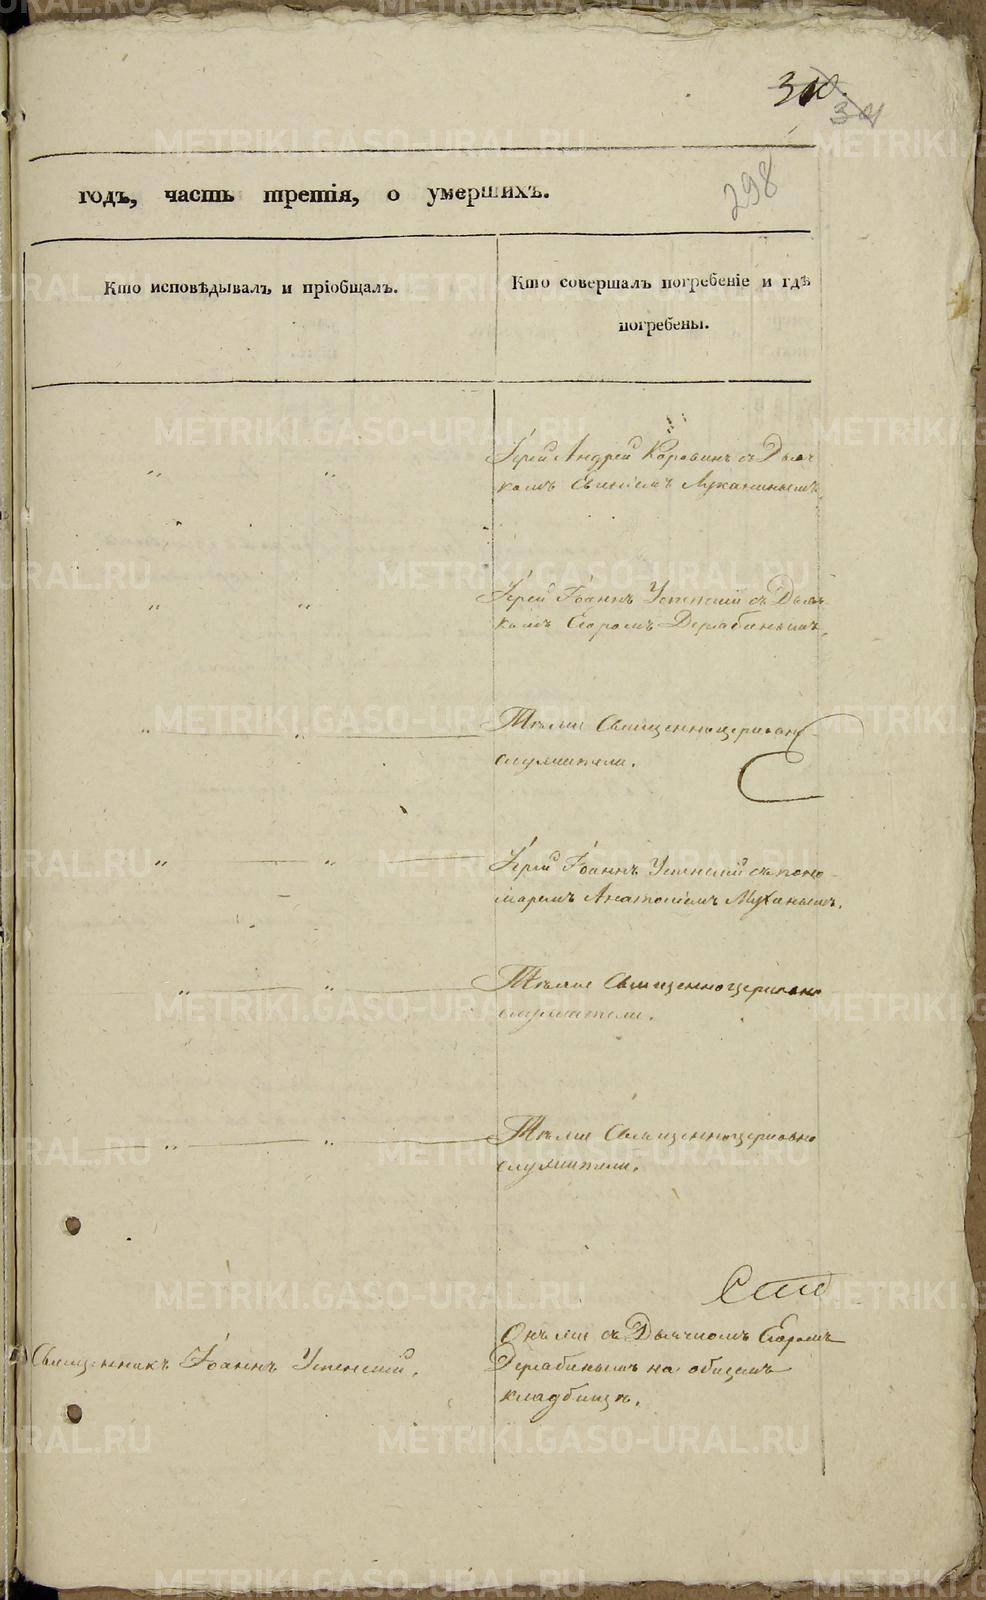 298
годъ, часть третія, о умершихъ.
Кто исповѣдывалъ и пріобщалъ.
Кто совершалъ погребеніе и гдѣ
погребены.
Іерей Андрей Коровинъ съ Дьяч
комъ Лукинымъ
Іерей Іоаннъ Успенскій съ Дьяч
комъ Егоромъ Дерябинымъ.
Тѣ же Священноцерковно
служители.
Іерей Іоаннъ Успенскій съ поно
маремъ Анатоліемъ Мухинымъ.
Тѣ же Священноцерковно
служители.
Тѣ же Священноцерковно
служители.
Священникъ Іоаннъ Успенскій.
Онъ же съ Дьячкомъ Егоромъ
Дерябинымъ на общемъ
кладбищѣ.
METRIKI.GASO-URAL.RU